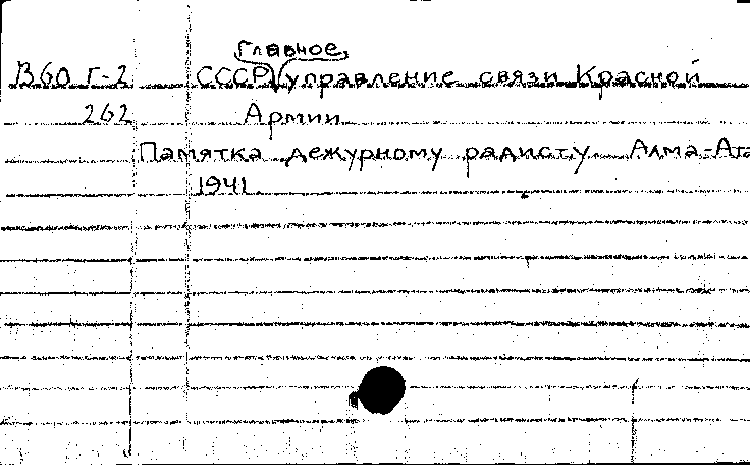 Главное
В60 Г-2 СССР управление связи Красной
262 Армии
Памятка дежурному радисту Алма-Ата
1941